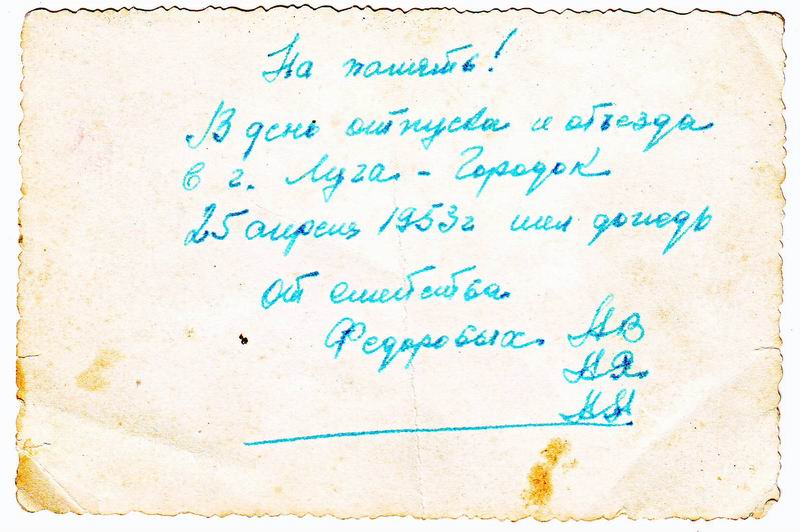 На память!
В день отпуска и отъезда
в г. Луга - Городок
25 апреля 1953 г шел дождь
От семейства
Федоровых НВ
НЯ
НН